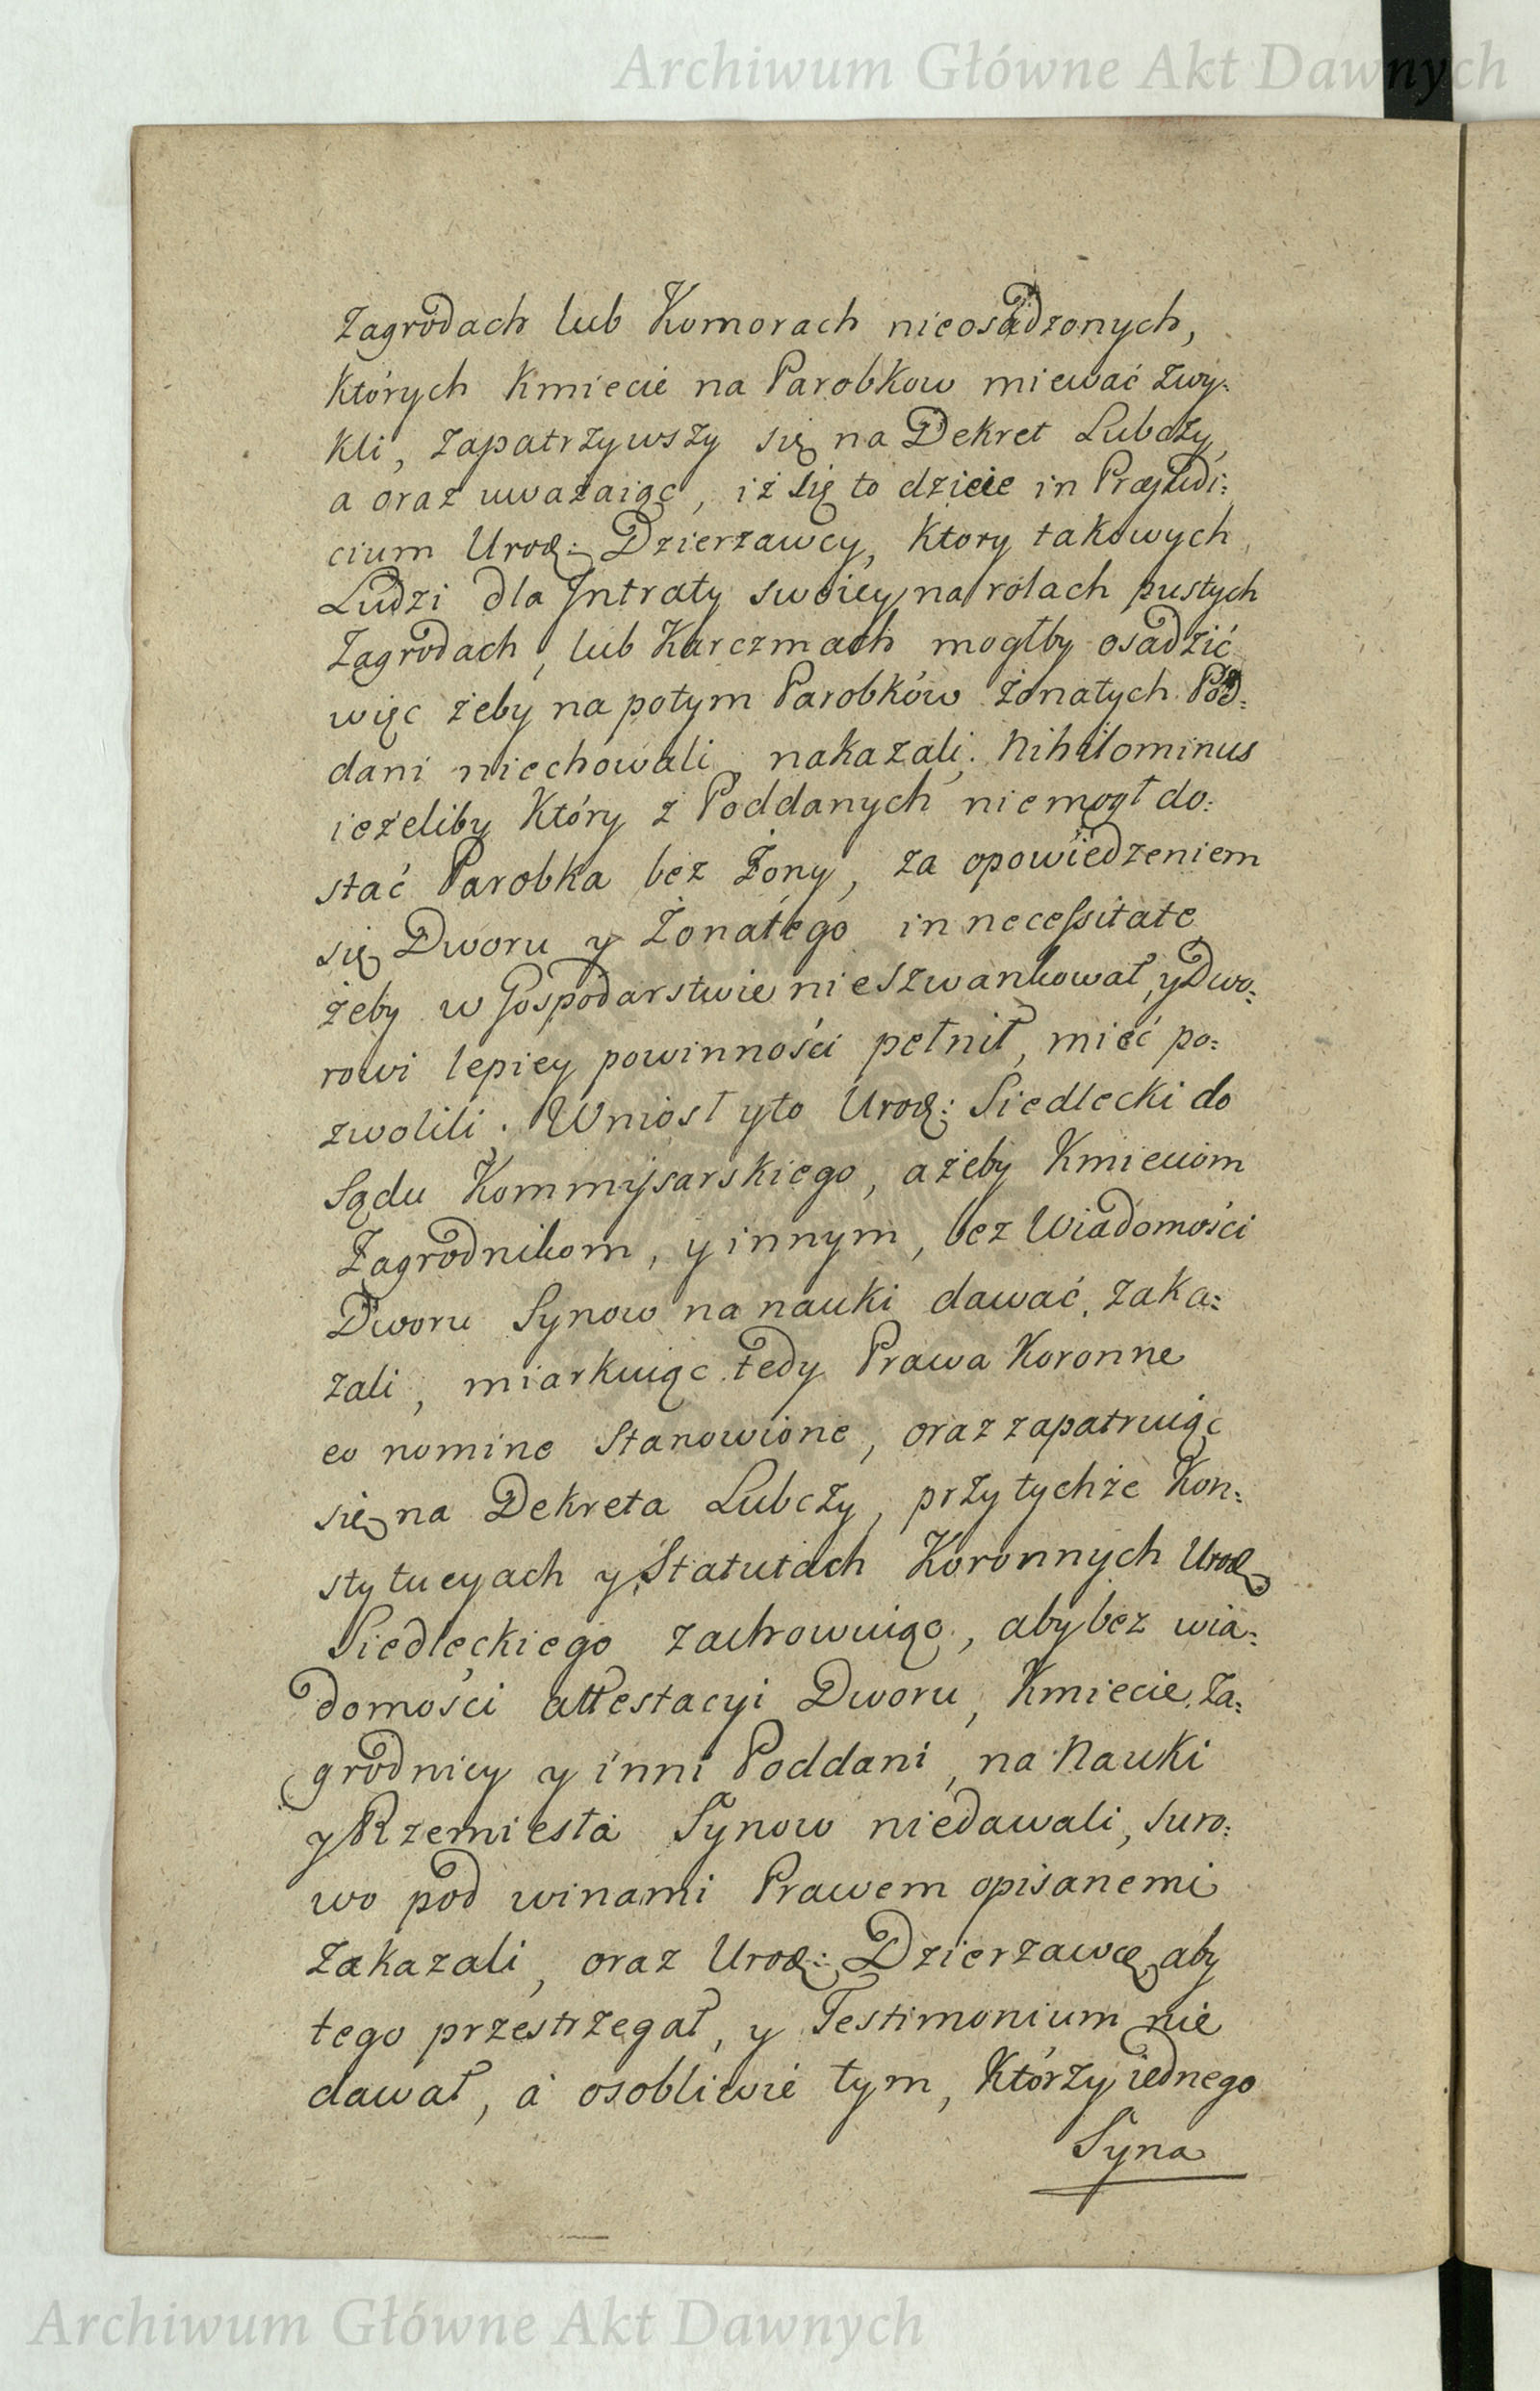 Archiwum Główne Akt Dawnych
Zagrodach lub Komorach nieosadzonych,
Których Kmiecie na Parobkow miewać zwy:
kli, zapatrzywszy się na Dekret Lubczy,
a oraz uwazaiąc, iż się to dzieie in Præjudi:
cium Urod: Dzierzawcy, Ktory takowych
Ludzi dla Intraty swoiey na rolach pustych
Zagrodach, lub Karczmach mogłby osadzić
więc żeby na potym Parobków żonatych Pod:
dani niechowali, nakazali. Nihilominus
ieżeliby Który z Poddanych niemogł do:
stać Parobka bez Żony, za opowiedzeniem
się Dworu y Żonatego in necessitate
żeby w Gospodarstwie nieszwankował, y Dwo:
rowi lepiey powinności pełnił, mieć po:
zwolili. Wniosł y to Urod: Siedlecki do
Sądu Kommissarskiego, ażeby Kmieciom
Zagrodnikom, y innym, bez Wiadomości
Dworu Synow na nauki dawać, zaka:
zali, miarkuiąc tedy Prawa Koronne
eo nomine Stanowione, oraz zapatruiąc
się na Dekreta Lubczy, przy tychże Kon:
stytucyach y Statutach Koronnych Urod:
Siedleckiego zachowuiąc, aby bez wia:
domości attestacyi Dworu, Kmiecie, Za:
grodnicy y inni Poddani, na Nauki
y Rzemiesła Synow niedawali, suro:
wo pod winami Prawem opisanemi
Zakazali, oraz Urod: Dzierzawcę, aby
tego przestrzegał, y Testimonium nie
dawał, a osobliwie tym, Którzy iednego
Syna
Archiwum Główne Akt Dawnych